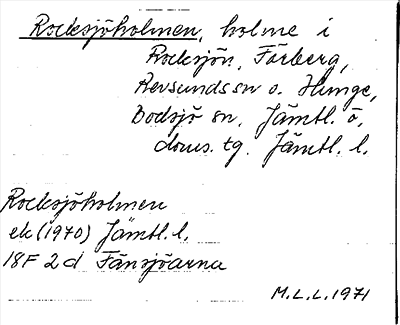 Rocksjöholmen, holme i
Rocksjön, Fårberg,
Revsunds sn o. Hunge,
Bodsjö sn, Jämtl. ö.
doms. tg. Jämtl. l.
Rocksjöholmen
ek (1970) Jämtl. l.
18F 2 d Fånsjöarna
M.L.L. 1971